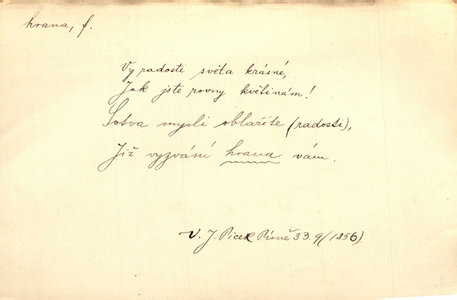 hrana, f.
Vy radosti světa krásné,
Jak jste rovny květinám!
Sotva mysli oblažíte (radosti),
Již vyzvání hrana vám.
V. J. Picek Písně 33.9/(1856)